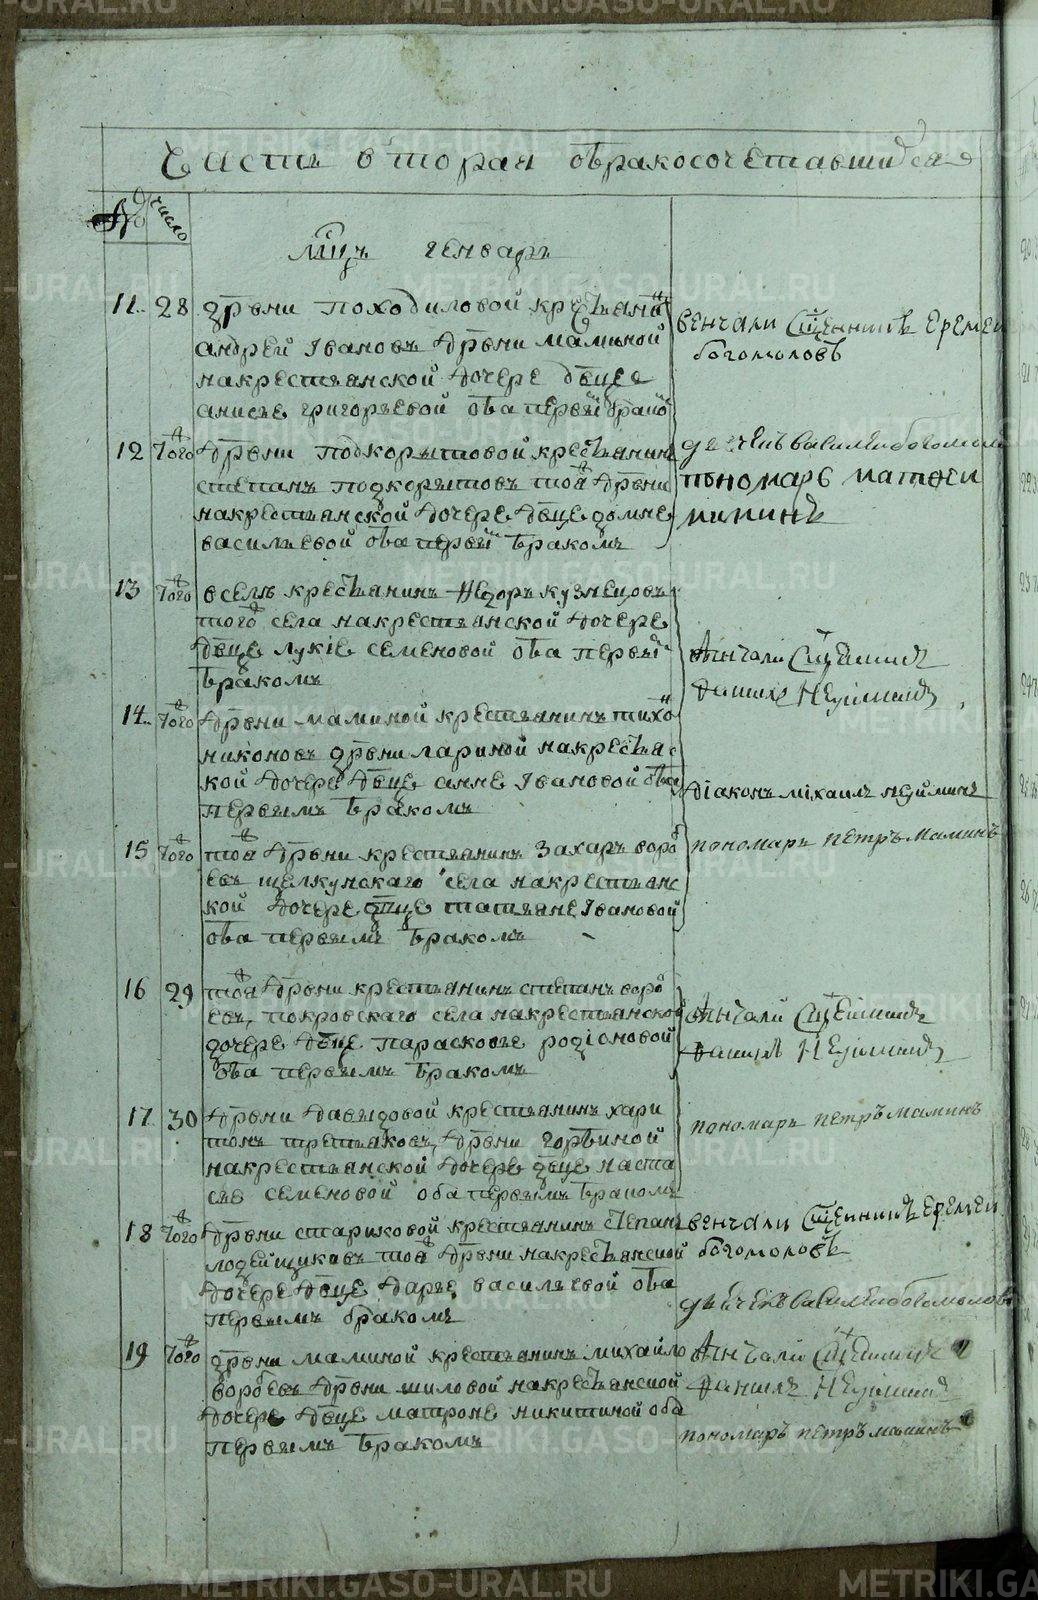 METRIKI.GASO-URAL.RU
Часть вторая обракосочетавшихся
№ число
Мцъ генварь
11. 28 дрвни походиловой крестьянинъ
андрей Ивановъ дрвни маминой
на крестьянской дочере девце
анисье григорьевой оба первый бракомъ
венчали Сщенникъ Еремей
богомоловъ
12 того дрвни подкорытовой крестьянинъ
степанъ подкорытовъ тоя дрвни
на крестьянской дочере девце домне
васильевой оба первый бракомъ
дьячекъ василеи богомоловъ
пономарь матфеи
13 того в селе крестьянинъ Федоръ кузнецовъ
того села на крестьянской дочере
девце лукіе семеновой оба первый
бракомъ
венчали Сщенникъ
14. того дрвни маминой крестьянинъ тихонъ
никоновъ дрвни лариной на крестьянс
кой дочере девце анне Івановой оба
первымъ бракомъ
діаконъ міхаилъ
15 того тоя дрвни крестьянинъ Захаръ вороб
евъ щелкунскаго села на крестьянс
кой дочере девце татьяне Івановой
оба первымъ бракомъ
пономарь петръ маминъ
16 29 тоя дрвни крестьянинъ степанъ вороб
евъ, покровскаго села на крестьянской
дочере девце парасковье родіоновой
оба первымъ бракомъ
венчали Сщенникъ
17 30 дрвни давыдовой крестьянинъ хари
тонъ третьяковъ, дрвни горбиной
на крестьянской дочере девце наста
сье семеновой оба первымъ бракомъ
пономарь петръ маминъ
18 того дрвни стариковой крестьянинъ степанъ
лодейщиковъ тоя дрвни на крестьянской
дочере девце дарье васильевой оба
первымъ бракомъ
венчали Сщенникъ Еремей
богомоловъ
дьячекъ василеи богомоловъ
19 того дрвни маминой крестьянинъ михайло
воробевъ дрвни шиловой на крестьянской
дочере девце матроне никитиной оба
первымъ бракомъ
венчали Сщенникъ
пономарь петръ маминъ